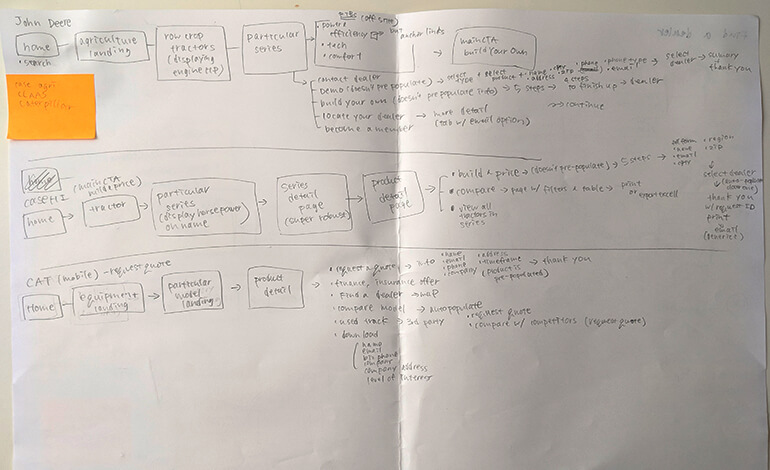 John Deere
home
• search
agriculture
landing
row crop
tractors
(displaying
engine HP)
particular
series
• power &
efficiency
• tech
• comfort
anchor links
main CTA
build your own
contact dealer
Demo (doesn't prepopulate) → select type → select product + name, address, zip
• phone • phone type
• email
→ select dealer → summary
thank you
build your own (doesn't prepopulate info) → 5 steps → 4 steps to finish up → dealer
locate your dealer → more detail
(tab w/ email option)
→ continue
become a member
case agri
CLAAS
Caterpillar
home
CASE IH
(main CTA
build & price)
home
tractor
particular
series
(display horsepower)
on name
series
detail
page
(super robust)
product
detail
page
• build & price → (doesn't pre-populate) → 5 steps →
• name
• email
• region
• zip
• compare → page w/ filters & table → print
or export excell
• view all
tractors in
series
select dealer
thank you
w/ request ID
print
email
(generic)
CAT (mobile) - request quote
Home
equipment
landing
particular
model
landing
product
detail
• request a quote → info
• name
• email
• phone
• company
• address
• timeframe
(product is
pre-populated)
→ thank you
• finance, insurance offer
• Find a dealer → map
• compare model → autopopulate
• request quote
• compare w/ competitors (request quote)
• used track → 3rd party
• download
name
email
biz phone
company
company address
level of interest